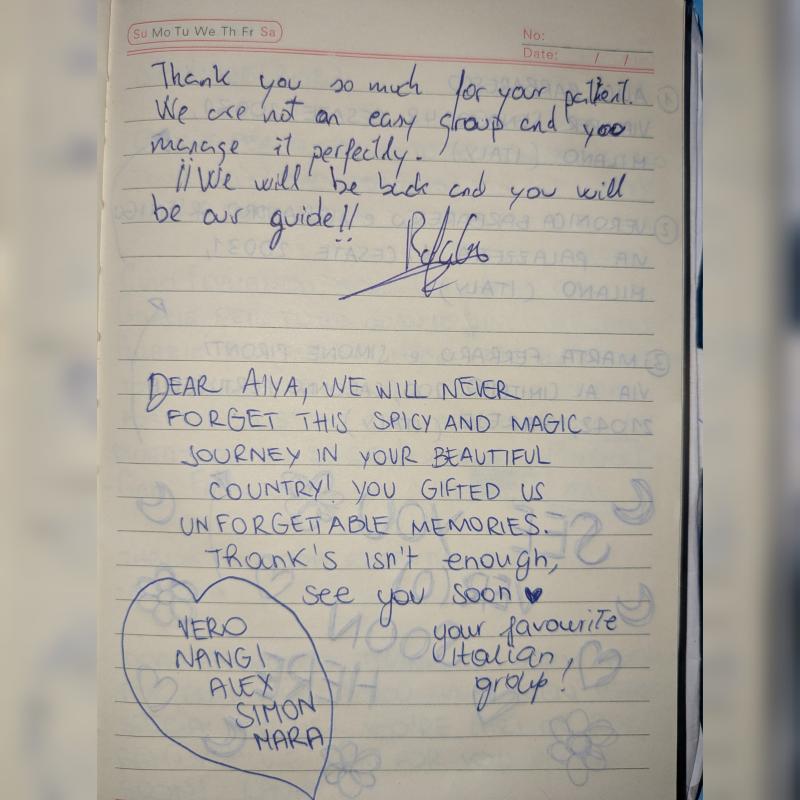 Su Mo Tu We Th Fr Sa
No:
Date: / /
Thank you so much for your patient.
We are not an easy group and you
manage it perfectly.
¡¡We will be back and you will
be our guide!!
DEAR AIYA, WE WILL NEVER
FORGET THIS SPICY AND MAGIC
JOURNEY IN YOUR BEAUTIFUL
COUNTRY! YOU GIFTED US
UNFORGETTABLE MEMORIES.
Thank's isn't enough,
see you soon ♥
your favourite
italian
group!
VERO
NANGI
ALEX
SIMON
MARA